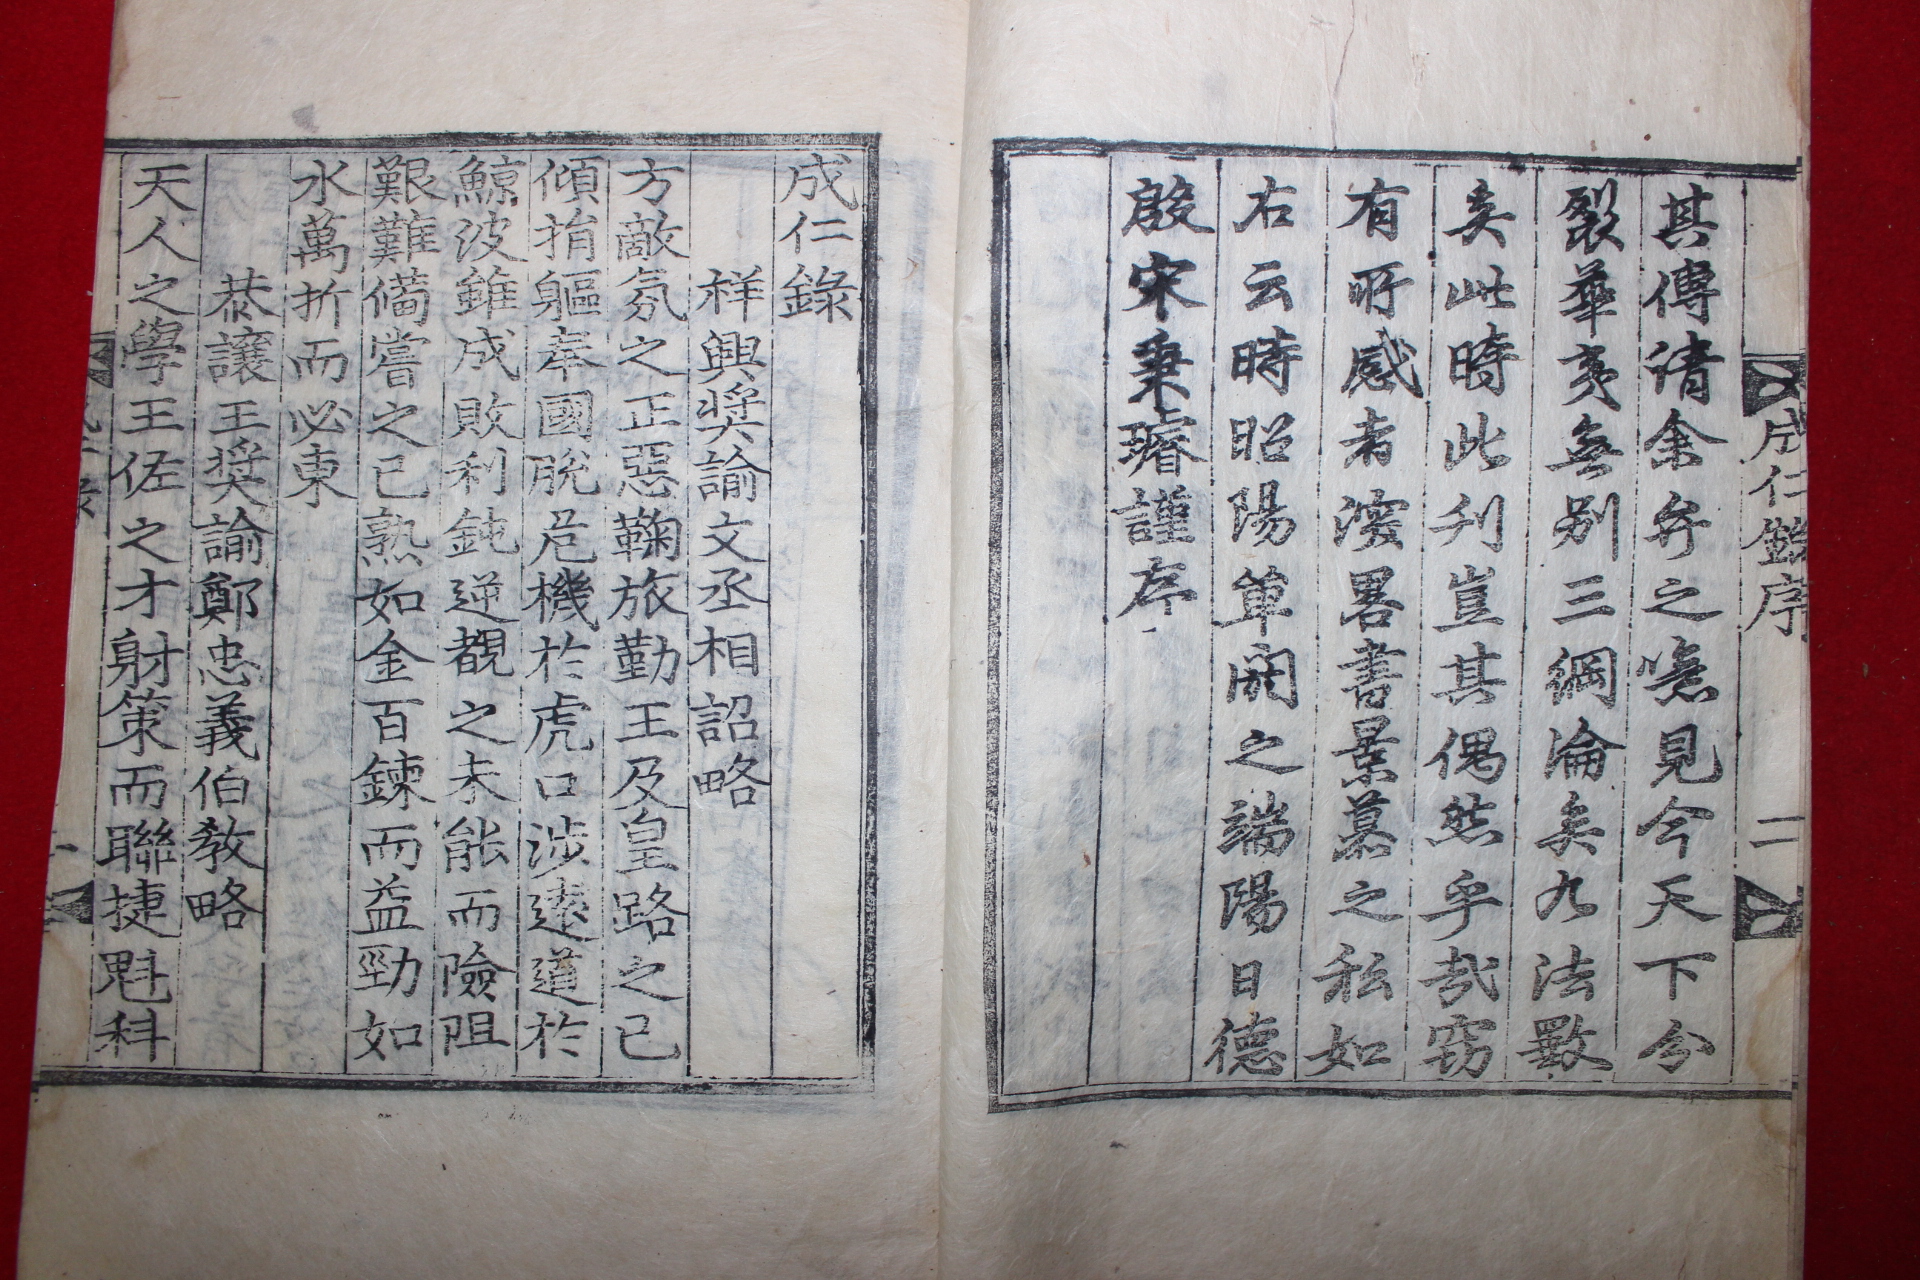 成仁錄序 二
其傳倩余弁之噫見今天下分
裂華夷無別三綱淪矣九法斁
矣此時此刋豈其偶然乎哉窃
有所感者漫畧書景慕之私如
右云時昭陽單閼之端陽日德
殷宋秉璿謹序
成仁錄
祥興奬諭文丞相詔略
方敵氛之正惡鞠旅勤王及皇路之已
傾捐軀奉國脫危機於虎口涉遠道於
鯨波雖成敗利鈍逆覩之未能而險阻
艱難備嘗之已熟如金百鍊而益勁如
水萬折而必東
恭讓王奬諭鄭忠義伯敎略
天人之學王佐之才射策而聯捷魁科